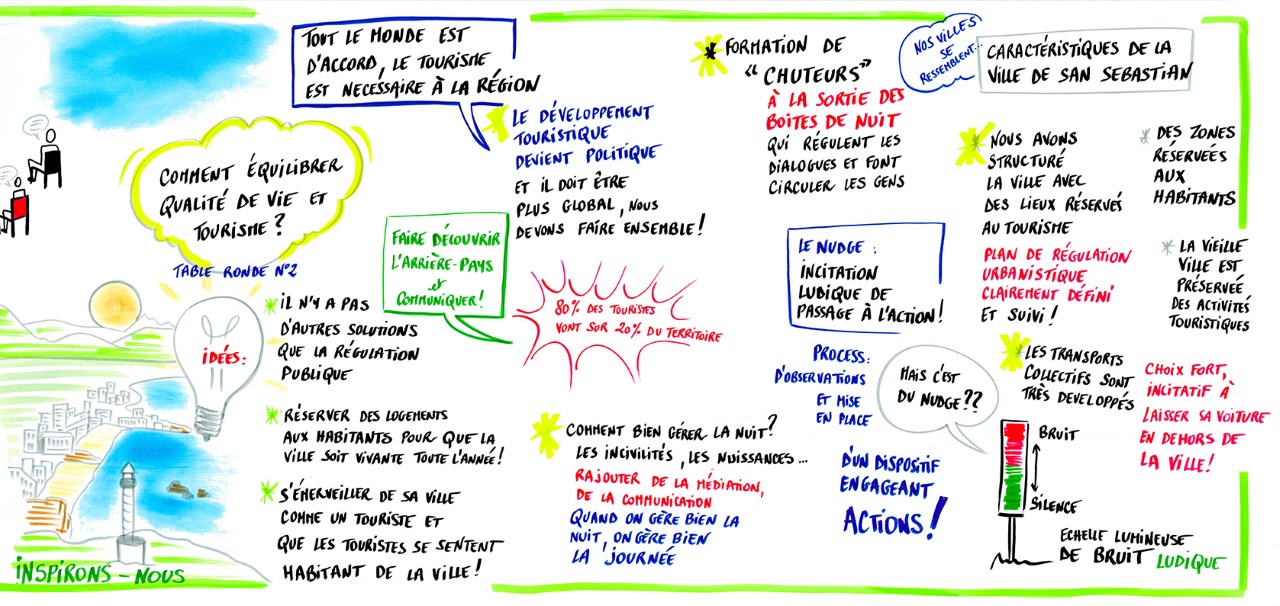 COMMENT ÉQUILIBRER
QUALITÉ DE VIE ET
TOURISME ?
TABLE RONDE N°2
IDÉES :
INSPIRONS - NOUS
TOUT LE MONDE EST
D'ACCORD, LE TOURISME
EST NECESSAIRE À LA RÉGION
LE DÉVELOPPEMENT
TOURISTIQUE
DEVIENT POLITIQUE
ET IL DOIT ÊTRE
PLUS GLOBAL, NOUS
DEVONS FAIRE ENSEMBLE !
FAIRE DÉCOUVRIR
L'ARRIÈRE-PAYS
et
COMMUNIQUER !
80% DES TOURISTES
VONT SUR 20% DU TERRITOIRE
IL N'Y A PAS
D'AUTRES SOLUTIONS
QUE LA RÉGULATION
PUBLIQUE
RÉSERVER DES LOGEMENTS
AUX HABITANTS POUR QUE LA
VILLE SOIT VIVANTE TOUTE L'ANNÉE !
S'ÉMERVEILLER DE SA VILLE
COMME UN TOURISTE ET
QUE LES TOURISTES SE SENTENT
HABITANT DE LA VILLE !
COMMENT BIEN GÉRER LA NUIT ?
LES INCIVILITÉS, LES NUISSANCES...
RAJOUTER DE LA MÉDIATION,
DE LA COMMUNICATION
QUAND ON GÈRE BIEN LA
NUIT, ON GÈRE BIEN
LA JOURNÉE
FORMATION DE
"CHUTEURS"
À LA SORTIE DES
BOITES DE NUIT
QUI RÉGULENT LES
DIALOGUES ET FONT
CIRCULER LES GENS
LE NUDGE :
INCITATION
LUBIQUE DE
PASSAGE À L'ACTION !
PROCESS :
D'OBSERVATIONS
ET MISE
EN PLACE
D'UN DISPOSITIF
ENGAGEANT
ACTIONS !
MAIS C'EST
DU NUDGE ??
BRUIT
SILENCE
ECHELLE LUMINEUSE
DE BRUIT LUDIQUE
NOS VILLES
SE
RESSEMBLENT...
CARACTÉRISTIQUES DE LA
VILLE DE SAN SEBASTIAN
NOUS AVONS
STRUCTURÉ
LA VILLE AVEC
DES LIEUX RÉSERVÉS
AU TOURISME
PLAN DE RÉGULATION
URBANISTIQUE
CLAIREMENT DÉFINI
ET SUIVI !
LES TRANSPORTS
COLLECTIFS SONT
TRÈS DEVELOPPÉS
DES ZONES
RÉSERVÉES
AUX
HABITANTS
LA VIEILLE
VILLE EST
PRÉSERVÉE
DES ACTIVITÉS
TOURISTIQUES
CHOIX FORT,
INCITATIF À
LAISSER SA VOITURE
EN DEHORS DE
LA VILLE !